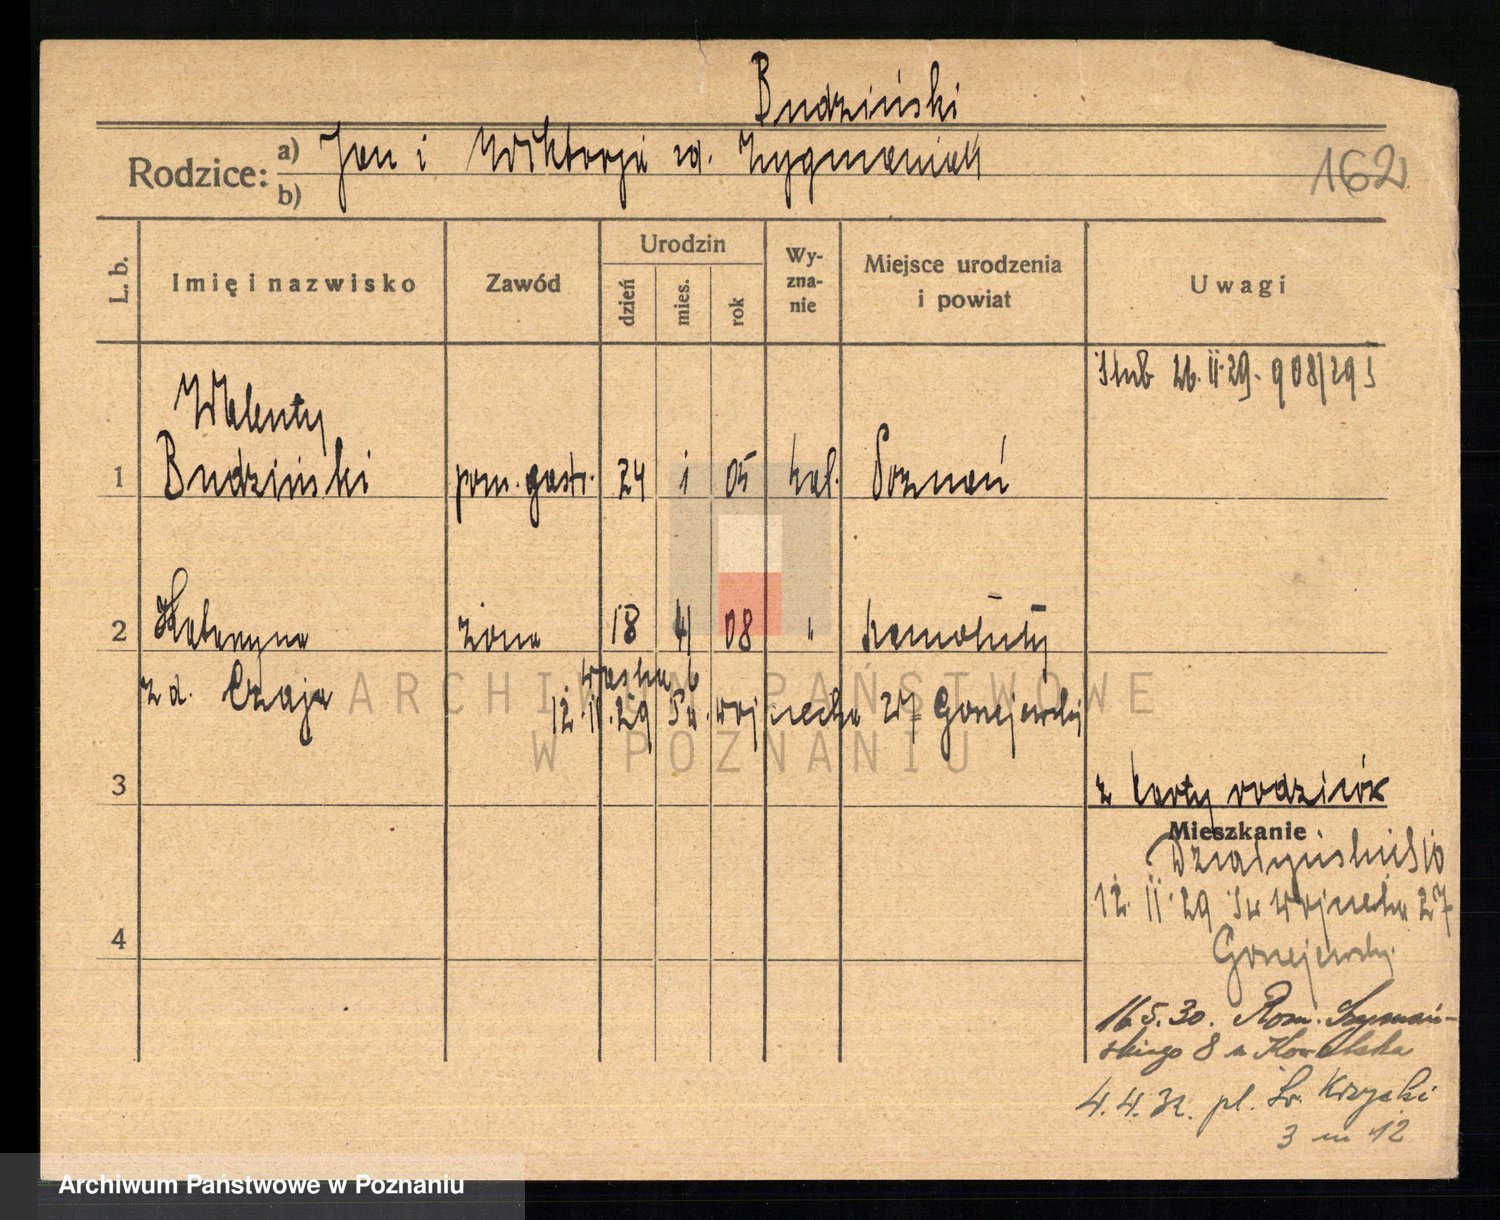 Budziński
Rodzice: a) Jan i Wiktorja zd. Zygmaniak
b)
162
L. b.
Imię i nazwisko
Zawód
Urodzin
dzień
mies.
rok
Wy-
zna-
nie
Miejsce urodzenia
i powiat
Uwagi
ślub 26.II.29. 908/29
1
Walenty
Budziński
pom. gastr.
24
1
05
kat.
Poznań
2
Katarzyna
zd. Czaja
żona
18
4
08
"
12.II.29 Św. Wojciecha 27
3
z karty rodziców
Mieszkanie
Działyńskich 10
12.II.29 Św Wojciecha 27
4
16.5.30. Rom. Szymań-
skiego 8 u Kowalska
4.4.32. pl. Św. Krzyski
3 m 12
ARCHIWUM PAŃSTWOWE
W POZNANIU
Archiwum Państwowe w Poznaniu